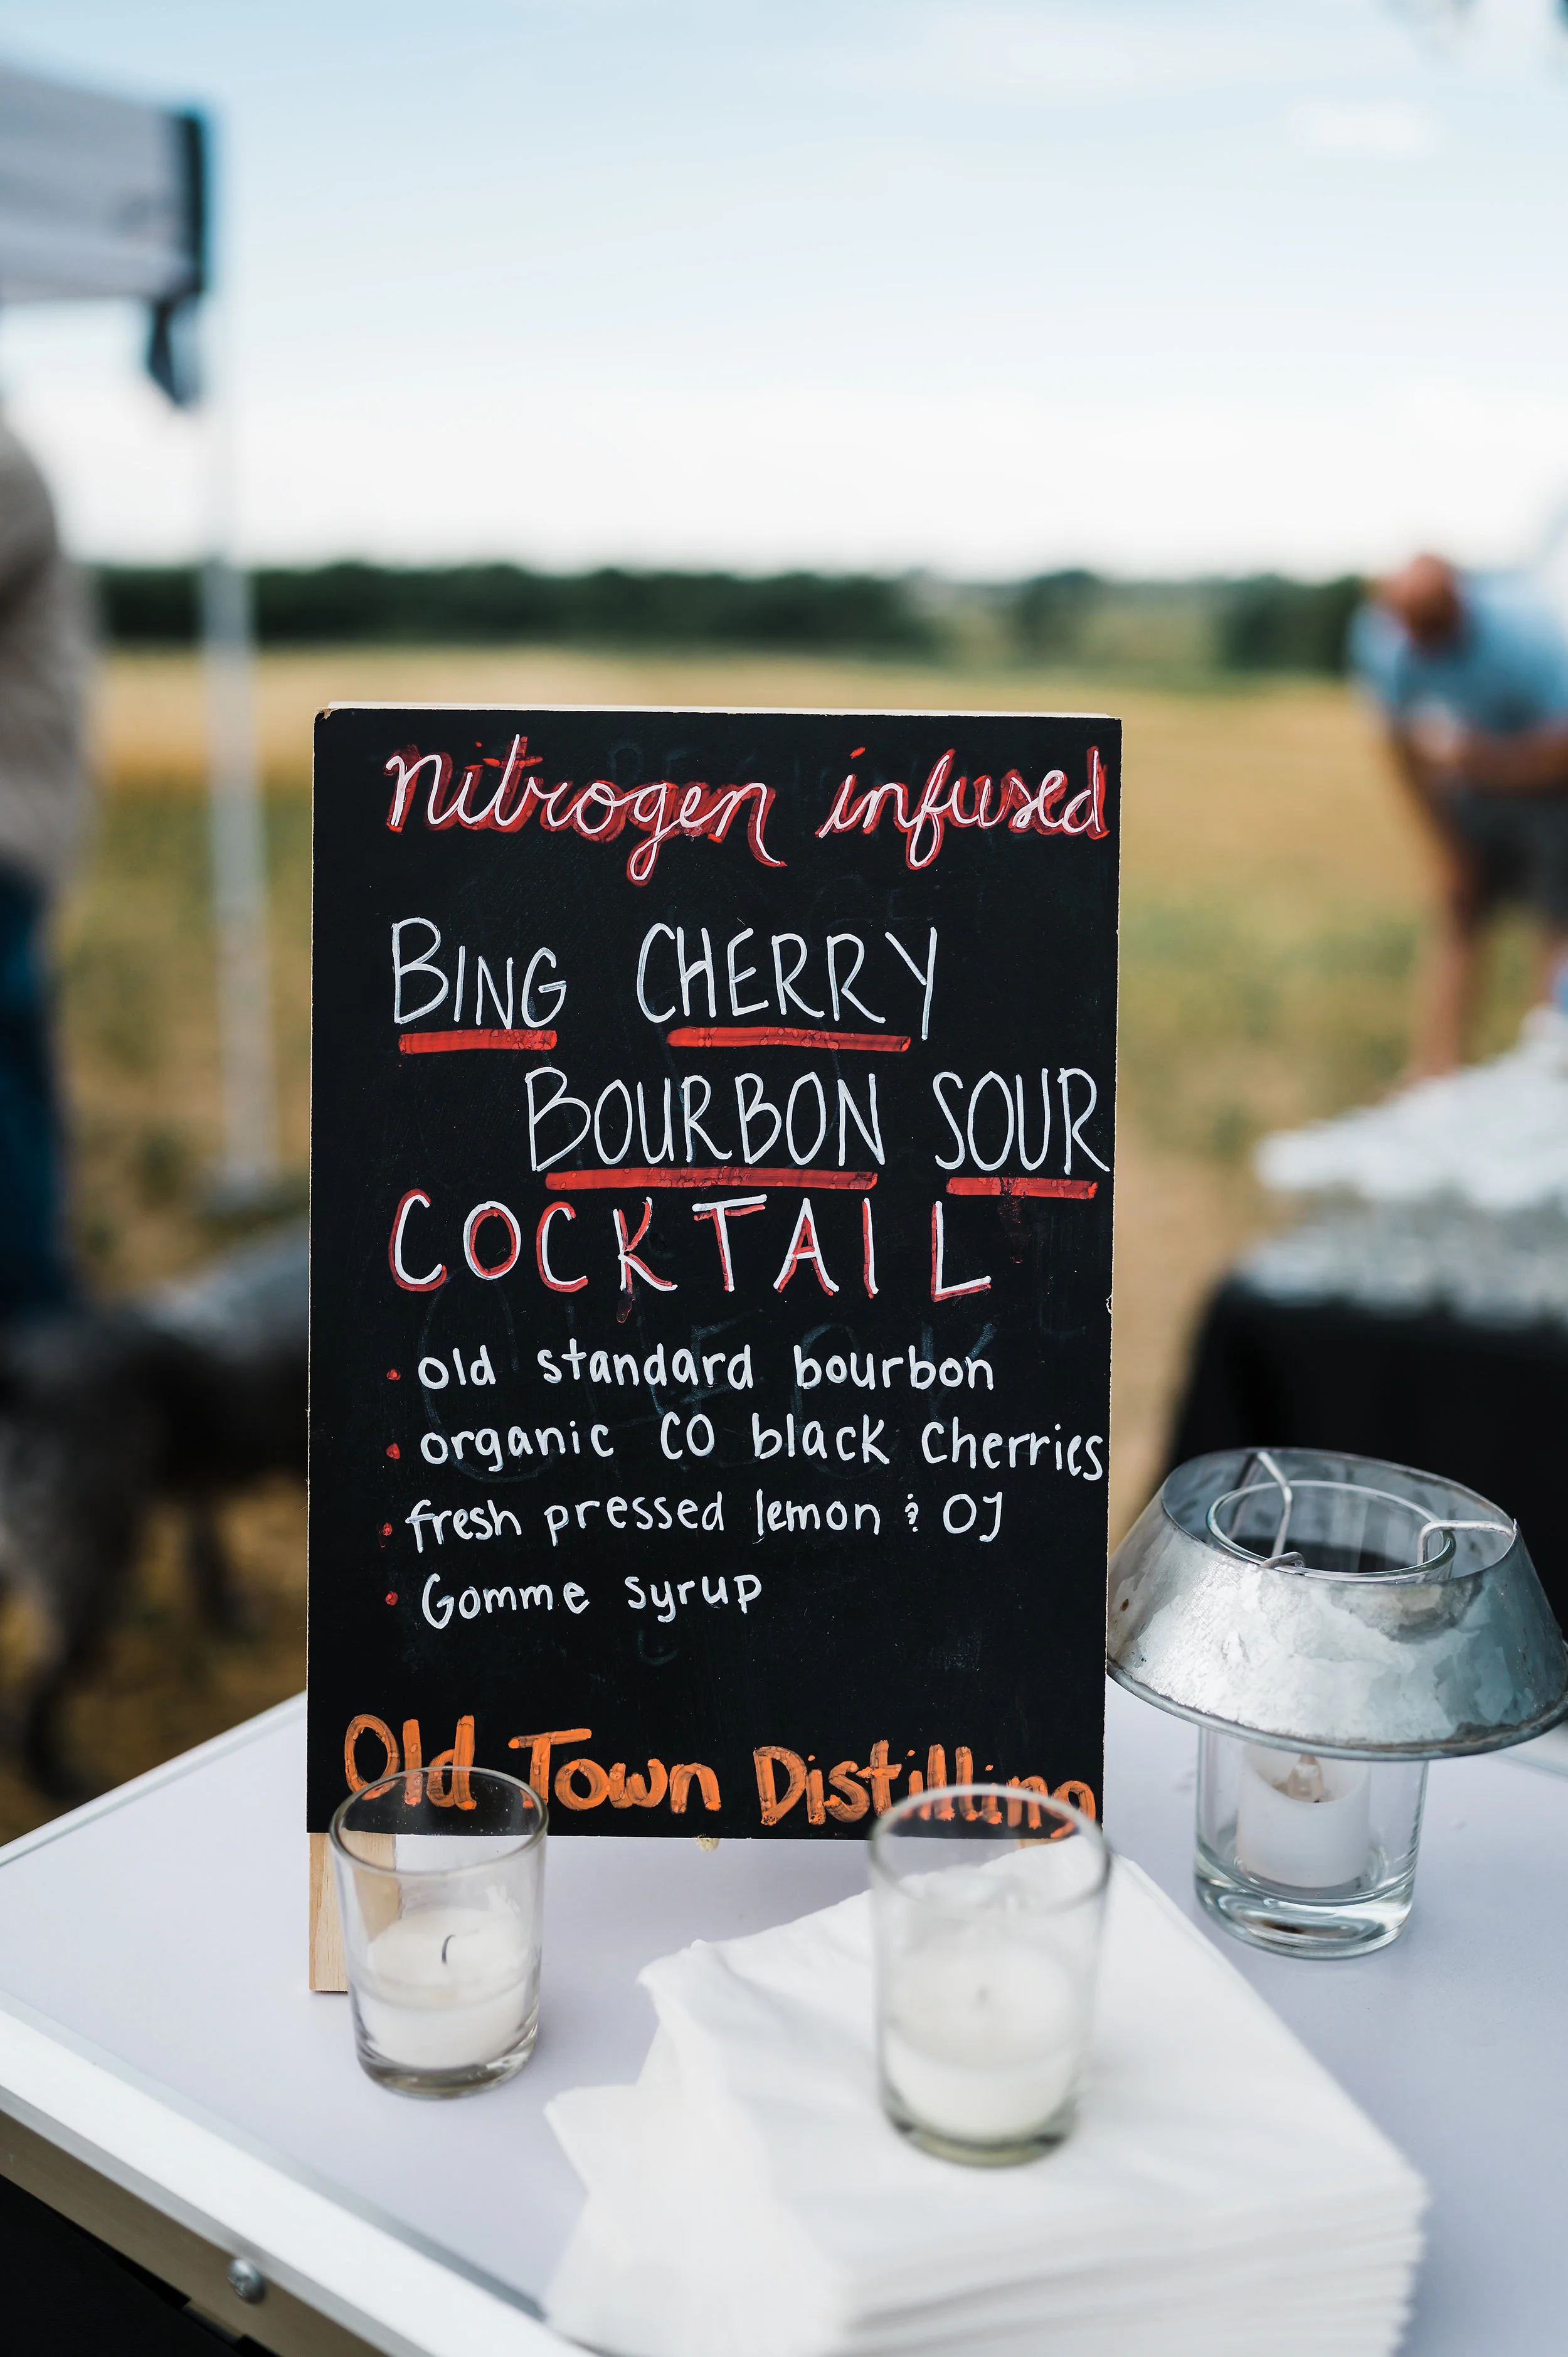 nitrogen infused
BING CHERRY
BOURBON SOUR
COCKTAIL
• old standard bourbon
• organic CO black cherries
• fresh pressed lemon & OJ
• Gomme syrup
Old Town Distilling